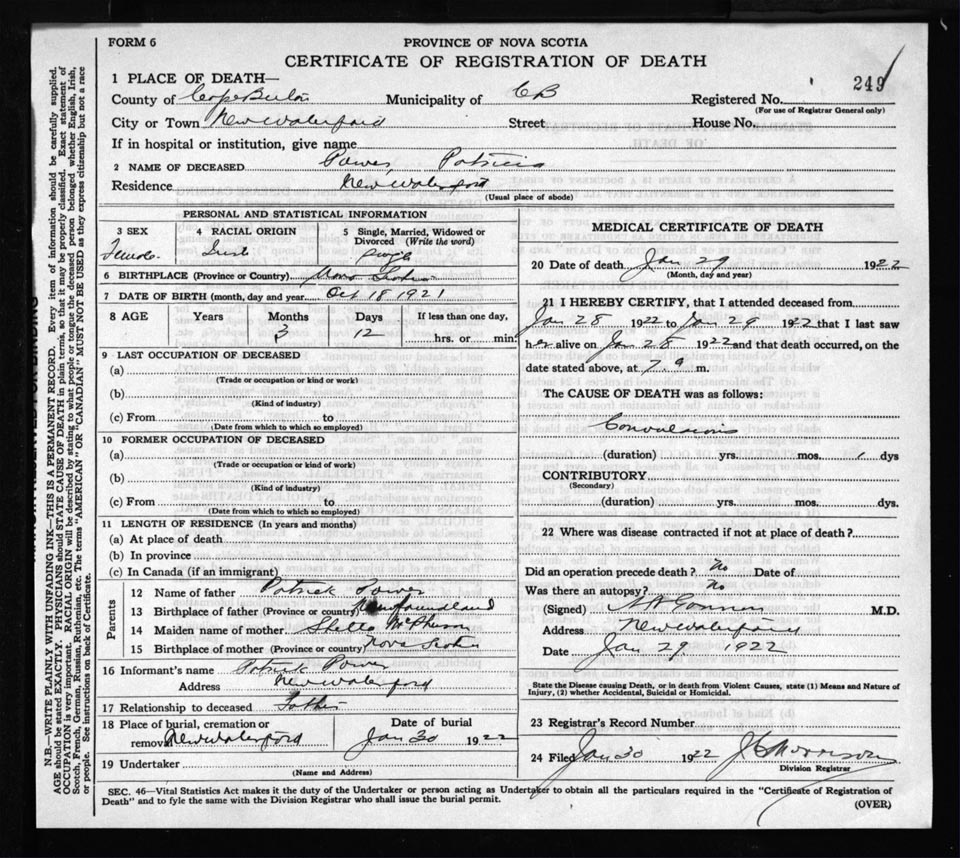 FORM 6
PROVINCE OF NOVA SCOTIA
CERTIFICATE OF REGISTRATION OF DEATH
249
1 PLACE OF DEATH—
County of Cape Breton Municipality of CB Registered No.
(For use of Registrar General only)
City or Town New Waterford Street House No.
If in hospital or institution, give name
2 NAME OF DECEASED Power, Patricia
Residence New Waterford
(Usual place of abode)
PERSONAL AND STATISTICAL INFORMATION
3 SEX 4 RACIAL ORIGIN 5 Single, Married, Widowed or
Divorced (Write the word)
Female Irish Single
6 BIRTHPLACE (Province or Country) Nova Scotia
7 DATE OF BIRTH (month, day and year Oct 18 1921
8 AGE Years Months Days If less than one day,
3 12 hrs. or min.
9 LAST OCCUPATION OF DECEASED
(a)
(Trade or occupation or kind or work)
(b)
(Kind of industry)
(c) From to
(Date from which to which so employed)
10 FORMER OCCUPATION OF DECEASED
(a)
(Trade or occupation or kind of work)
(b)
(Kind of industry)
(c) From to
(Date from which to which so employed)
11 LENGTH OF RESIDENCE (In years and months)
(a) At place of death
(b) In province
(c) In Canada (if an immigrant)
Parents
12 Name of father Patrick Power
13 Birthplace of father (Province or country) Newfoundland
14 Maiden name of mother McPherson
15 Birthplace of mother (Province or country) Nova Scotia
16 Informant's name Patrick Power
Address New Waterford
17 Relationship to deceased Father
18 Place of burial, cremation or Date of burial
removal New Waterford Jan 30 1922
19 Undertaker
(Name and Address)
MEDICAL CERTIFICATE OF DEATH
20 Date of death Jan 29 1922
(Month, day and year)
21 I HEREBY CERTIFY, that I attended deceased from
Jan 28 1922 to Jan 29 1922 that I last saw
her alive on Jan 28 1922 and that death occurred, on
date stated above, at 7 a m.
The CAUSE OF DEATH was as follows:
Convulsions
(duration) yrs. mos. 1 dys
CONTRIBUTORY
(Secondary)
(duration) yrs. mos. dys.
22 Where was disease contracted if not at place of death?
Did an operation precede death? No Date of
Was there an autopsy? No
(Signed) M.D.
Address New Waterford
Date Jan 29 1922
State the Disease causing Death, or in death from Violent Causes, state (1) Means and Nature of
Injury, (2) whether Accidental, Suicidal or Homicidal.
23 Registrar's Record Number
24 Filed Jan 30 1922 Morrison
Division Registrar
SEC. 46—Vital Statistics Act makes it the duty of the Undertaker or person acting as Undertaker to obtain all the particulars required in the "Certificate of Registration of
Death" and to fyle the same with the Division Registrar who shall issue the burial permit.
(OVER)
N.B.—WRITE PLAINLY WITH UNFADING INK—THIS IS A PERMANENT RECORD. Every item of information should be carefully supplied.
AGE should be stated EXACTLY. PHYSICIANS should STATE CAUSE OF DEATH in plain terms, so that it may be properly classified. Exact statement of
OCCUPATION is very important. RACIAL ORIGIN will be described by stating to what people or tongue the deceased person belonged, whether English, Irish,
Scotch, French, German, Russian, Ruthenian, etc. The terms "AMERICAN" OR "CANADIAN" MUST NOT BE USED as they express citizenship but not a race
or people. See instructions on back of Certificate.